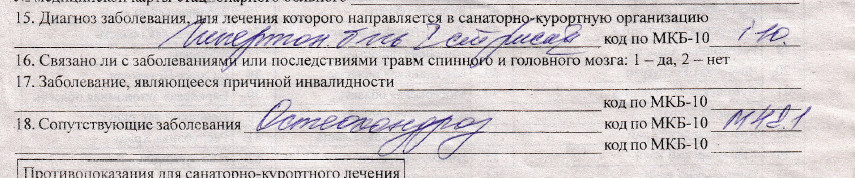 № медицинской карты стационарного больного
15. Диагноз заболевания, для лечения которого направляется в санаторно-курортную организацию
Гипертон. б-нь I ст код по МКБ-10 i 10.
16. Связано ли с заболеваниями или последствиями травм спинного и головного мозга: 1 – да, 2 – нет
17. Заболевание, являющееся причиной инвалидности
код по МКБ-10
18. Сопутствующие заболевания Остеохондроз код по МКБ-10 М42.1
код по МКБ-10
Противопоказания для санаторно-курортного лечения